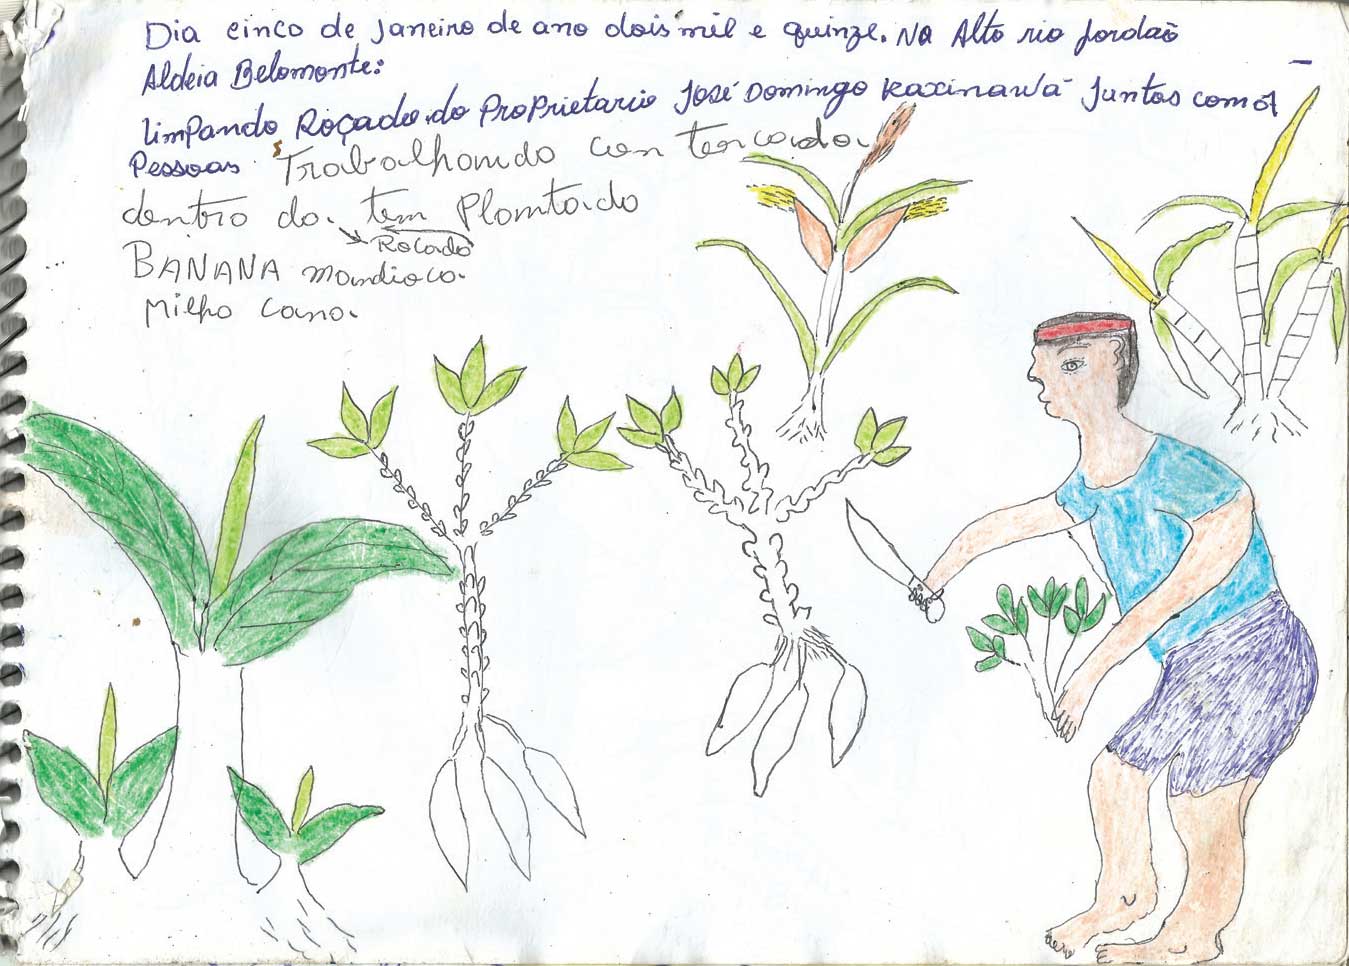 Dia cinco de Janeiro de ano dois mil e quinze. No Alto rio Jordão
Aldeia Belomonte:
limpando Roçado do Proprietario José Domingo Kaxinawá Juntos com
Pessoas Trabalhando
dentro do. tem Plantado
Roçado
BANANA mandioca.
Milho cana.